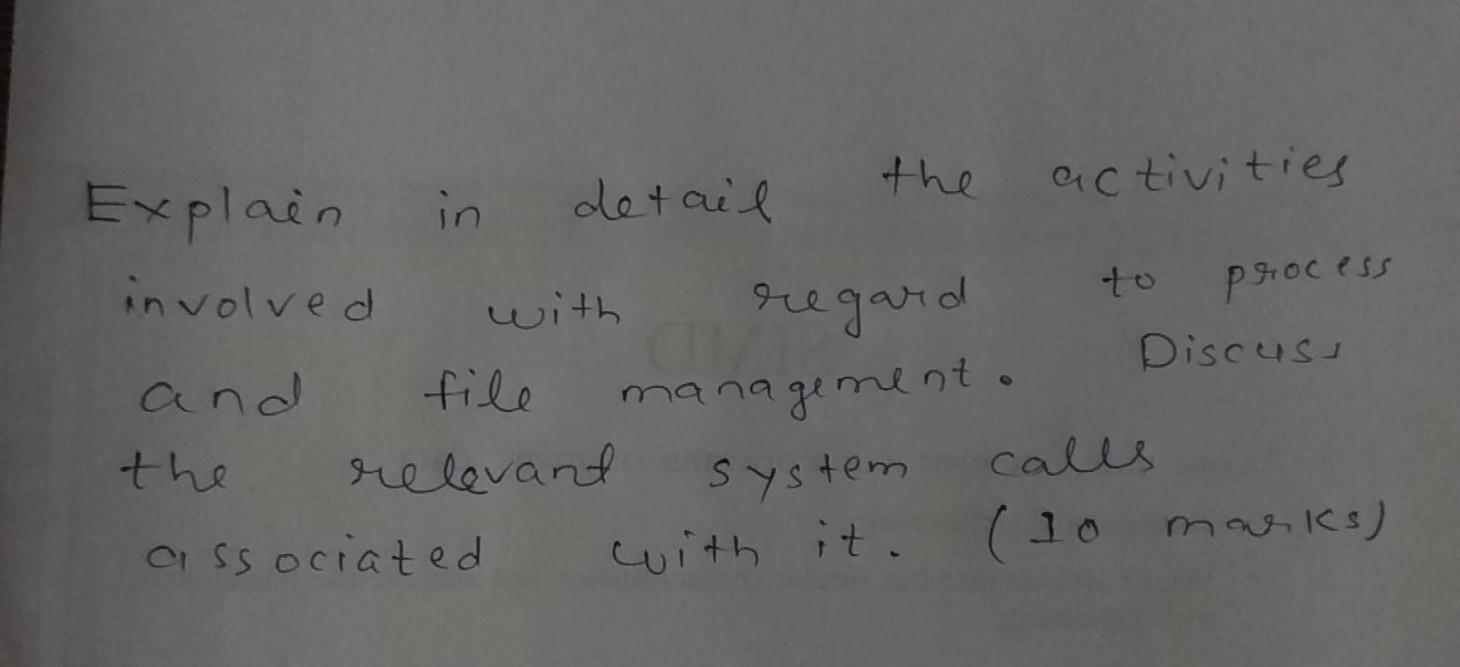 Explain in detail the activities
involved with regard to process
and file management. Discuss
the relevant system calls
associated with it. (10 marks)
SIMD